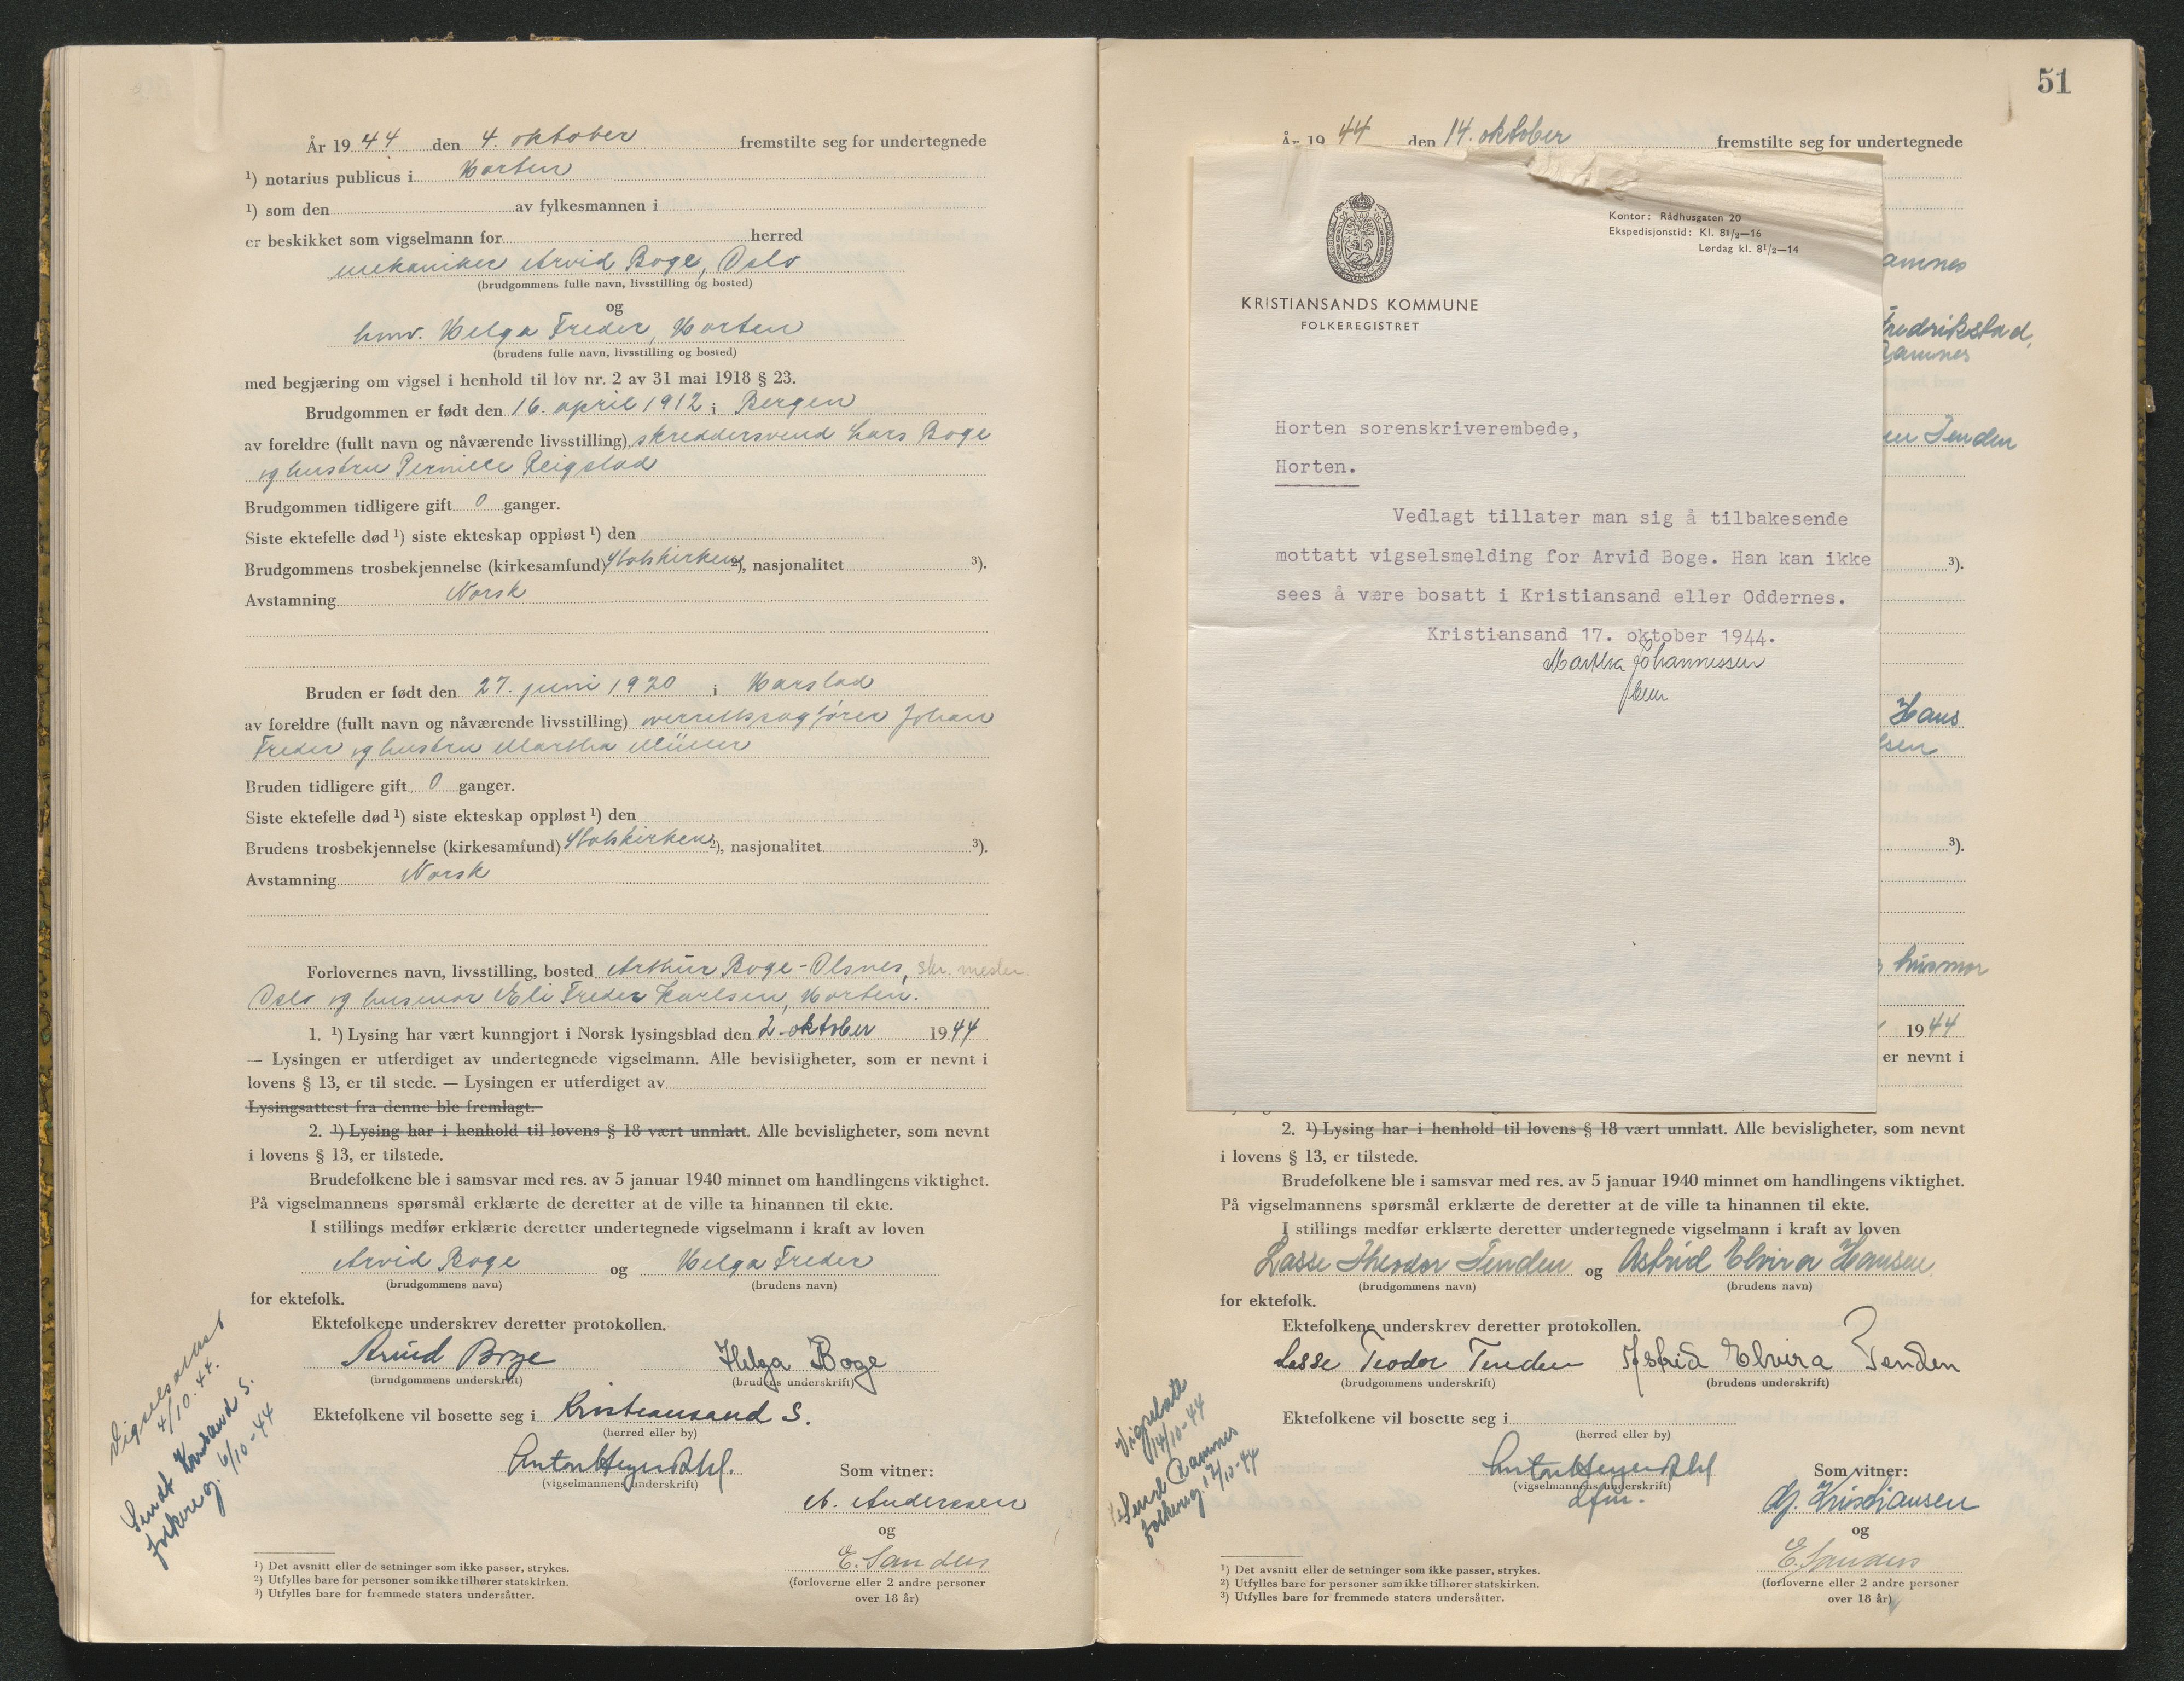 År 1944 den 4. oktober fremstilte seg for undertegnede
¹) notarius publicus i Horten
¹) som den av fylkesmannen i
er beskikket som vigselmann for herred
mekaniker Arvid Boge, Oslo
(brudgommens fulle navn, livsstilling og bosted)
og
hmv. Helga Freder, Horten
(brudens fulle navn, livsstilling og bosted)
med begjæring om vigsel i henhold til lov nr. 2 av 31 mai 1918 § 23.
Brudgommen er født den 16. april 1912 i Bergen
av foreldre (fullt navn og nåværende livsstilling) skreddersvend Lars Boge
og hustru Pernille Reigstad
Brudgommen tidligere gift 0 ganger.
Siste ektefelle død ¹) siste ekteskap oppløst ¹) den
Brudgommens trosbekjennelse (kirkesamfund) Statskirken ²), nasjonalitet ³).
Avstamning Norsk
Bruden er født den 27. juni 1920 i Harstad
av foreldre (fullt navn og nåværende livsstilling) overrettssagfører Johan
Freder og hustru Martha Müller
Bruden tidligere gift 0 ganger.
Siste ektefelle død ¹) siste ekteskap oppløst ¹) den
Brudens trosbekjennelse (kirkesamfund) Statskirken ²), nasjonalitet ³).
Avstamning Norsk
Forlovernes navn, livsstilling, bosted Arthur Boge-Olsnes, skr. mester
Oslo og husmor Eli Freder Karlsen, Horten.
1. ¹) Lysing har vært kunngjort i Norsk lysingsblad den 2. oktober 1944
— Lysingen er utferdiget av undertegnede vigselmann. Alle bevisligheter, som er nevnt i
lovens § 13, er til stede. — Lysingen er utferdiget av
Lysingsattest fra denne ble fremlagt.
2. ¹) Lysing har i henhold til lovens § 18 vært unnlatt. Alle bevisligheter, som nevnt
i lovens § 13, er tilstede.
Brudefolkene ble i samsvar med res. av 5 januar 1940 minnet om handlingens viktighet.
På vigselmannens spørsmål erklærte de deretter at de ville ta hinannen til ekte.
I stillings medfør erklærte deretter undertegnede vigselmann i kraft av loven
Arvid Boge og Helga Freder
(brudgommens navn) (brudens navn)
for ektefolk.
Ektefolkene underskrev deretter protokollen.
Arvid Boge Helga Boge
(brudgommens underskrift) (brudens underskrift)
Ektefolkene vil bosette seg i Kristiansand S.
(herred eller by)
(vigselmannens underskrift)
Som vitner:
A. Anderssen
og
E. Sanders
(forloverne eller 2 andre personer
over 18 år)
Vigselsattest
4/10.44.
Sendt Kr.sand S.
folkereg. 6/10-44
¹) Det avsnitt eller de setninger som ikke passer, strykes.
²) Utfylles bare for personer som ikke tilhører statskirken.
³) Utfylles bare for fremmede staters undersåtter.
51
År 1944 den 14. oktober fremstilte seg for undertegnede
Kontor: Rådhusgaten 20
Ekspedisjonstid: Kl. 8½—16
Lørdag kl. 8½—14
KRISTIANSANDS KOMMUNE
FOLKEREGISTRET
Horten sorenskriverembede,
Horten.
Vedlagt tillater man sig å tilbakesende
mottatt vigselsmelding for Arvid Boge. Han kan ikke
sees å være bosatt i Kristiansand eller Oddernes.
Kristiansand 17. oktober 1944.
Martha Johannessen
amnes
Fredrikstad,
Ramnes
en Tenden
³).
Hans
lsen
³).
husmor
1944
er nevnt i
2. ¹) Lysing har i henhold til lovens § 18 vært unnlatt. Alle bevisligheter, som nevnt
i lovens § 13, er tilstede.
Brudefolkene ble i samsvar med res. av 5 januar 1940 minnet om handlingens viktighet.
På vigselmannens spørsmål erklærte de deretter at de ville ta hinannen til ekte.
I stillings medfør erklærte deretter undertegnede vigselmann i kraft av loven
Lasse Theodor Tenden og Astrid Elvira Hansen
(brudgommens navn) (brudens navn)
for ektefolk.
Ektefolkene underskrev deretter protokollen.
Lasse Teodor Tenden Astrid Elvira Tenden
(brudgommens underskrift) (brudens underskrift)
Ektefolkene vil bosette seg i
(herred eller by)
(vigselmannens underskrift)
Som vitner:
Kristiansen
og
E. Sanders
(forloverne eller 2 andre personer
over 18 år)
Vigselsatt
14/10-44
Send Ramnes
folkereg. 17/10-44
¹) Det avsnitt eller de setninger som ikke passer, strykes.
²) Utfylles bare for personer som ikke tilhører statskirken.
³) Utfylles bare for fremmede staters undersåtter.